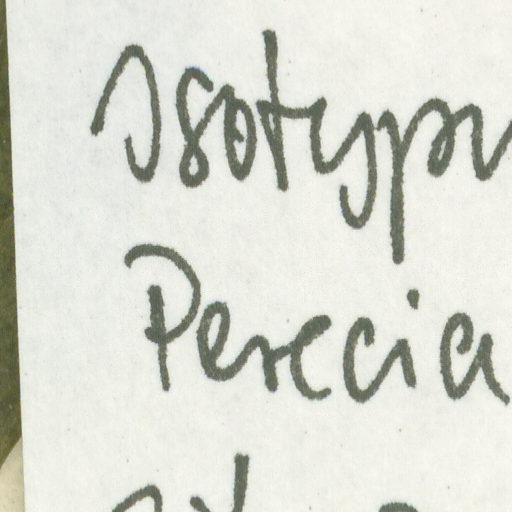 Isotypu
Perecia